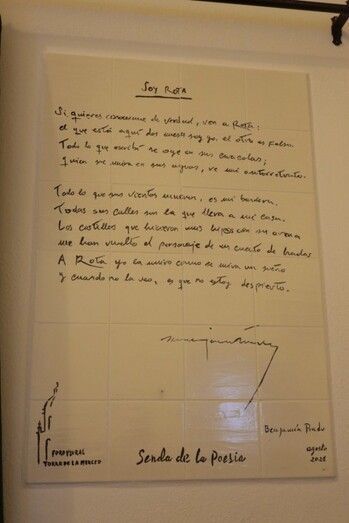 SOY ROTA
Si quieres conocerme de verdad, ven a Rota:
el que está aquí dos meses soy yo. el otro es falso.
Todo lo que escribí se oye en sus caracolas;
Quien se mira en sus aguas, ve mi autorretrato.
Todo lo que sus vientos mueven, es mi bandera.
Todas sus calles son la que lleva a mi casa.
Los castillos que hicieron mis hijos con su arena
me han vuelto el personaje de un cuento de hadas
A Rota yo la miro como se mira un sueño
y cuando no la veo, es que no estoy despierto.
Benjamín Prado
agosto
FORO PLURAL
TORRE DE LA MERCED
Senda de la Poesía